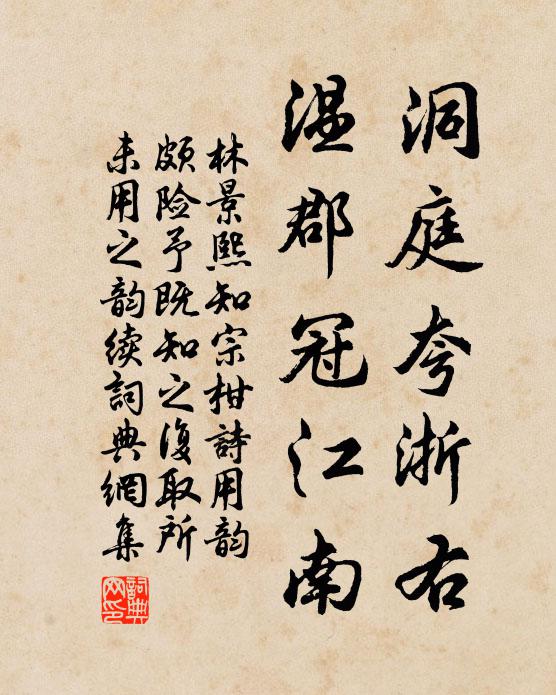 洞庭夸浙右
温郡冠江南
林景熙知宗柑詩用韵
颇险予既知之復取所
未用之韵续詞典網集
詞典网印